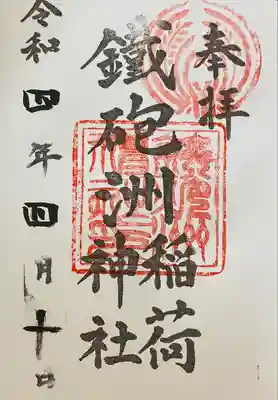 奉拝
鐵砲洲稲荷神社
令和四年四月十日